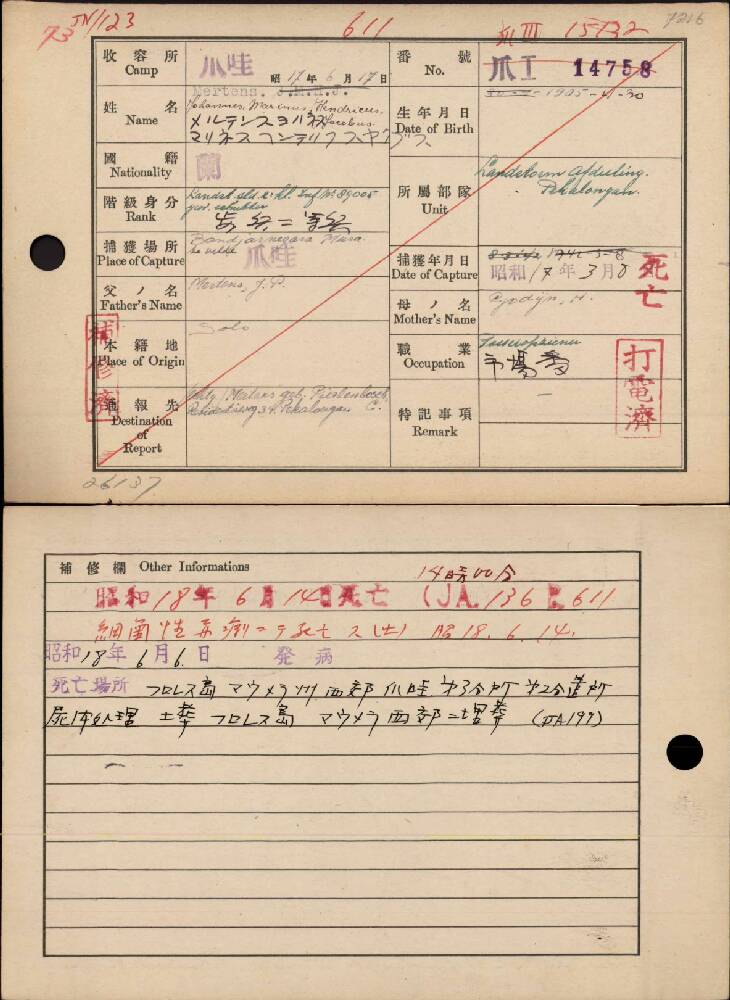 73 JN/123
611
爪III 15132
7216
收容所
Camp
爪哇
昭17年6月17日
番號
No.
爪I 14758
姓名
Name
Mertens. J.M.H.J.
Johannes, Marinus, Hendricus,
Jacobus.
メルテンス ヨハネス
マリネス ヘンデリクス ヤコブス
生年月日
Date of Birth
1905-4-30
國籍
Nationality
蘭
所屬部隊
Unit
Landstorm Afdeeling.
Pekalongan.
階級身分
Rank
Landst. sld. 2e kl. Inf. No. 89005
gew. schutter
捕獲場所
Place of Capture
Bandjarnegara
te velde
爪哇
捕獲年月日
Date of Capture
1942-3-8
昭和17年3月8
死亡
父ノ名
Father's Name
Mertens, J.P.
母ノ名
Mother's Name
本籍地
Place of Origin
Solo
補修濟
職業
Occupation
打電濟
通報先
Destination
of
Report
34, Pekalongan
特記事項
Remark
—
26137
補修欄 Other Informations
14時00分
昭和18年6月14日死亡 (JA. 136 P. 611
細菌性赤痢ニテ死亡ス(土) 昭18.6.14.
昭和18年6月6日 発病
死亡場所 フロレス島 マウメラ州 西部 爪哇 第3分所 第2分遣所
屍体処理 土葬 フロレス島 マウメラ西部ニ埋葬 (JA199)